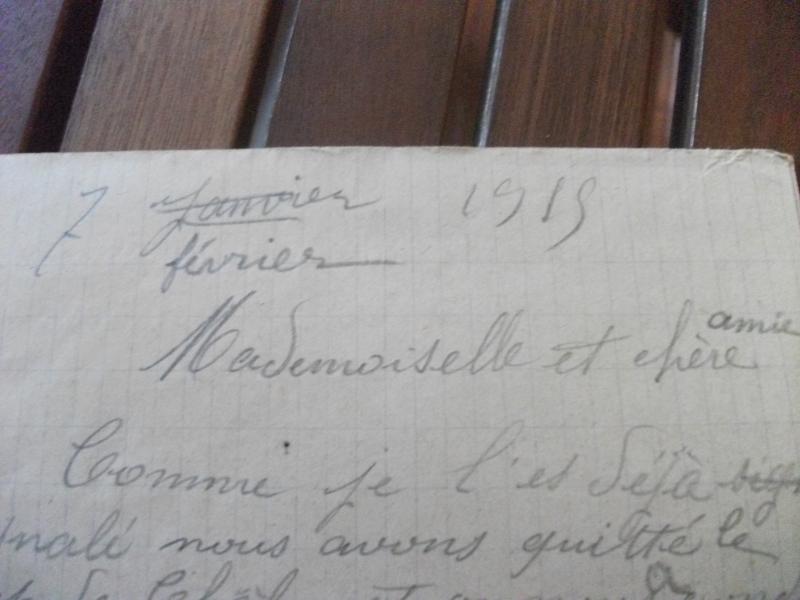 7 Janvier 1919
février
Mademoiselle et chère amie
Comme je l'es déjà sig
gnalé nous avons quitté le
de et